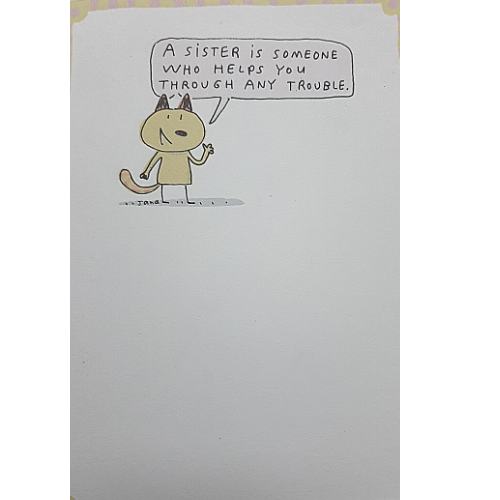 A SISTER IS SOMEONE
WHO HELPS YOU
THROUGH ANY TROUBLE.
Jana